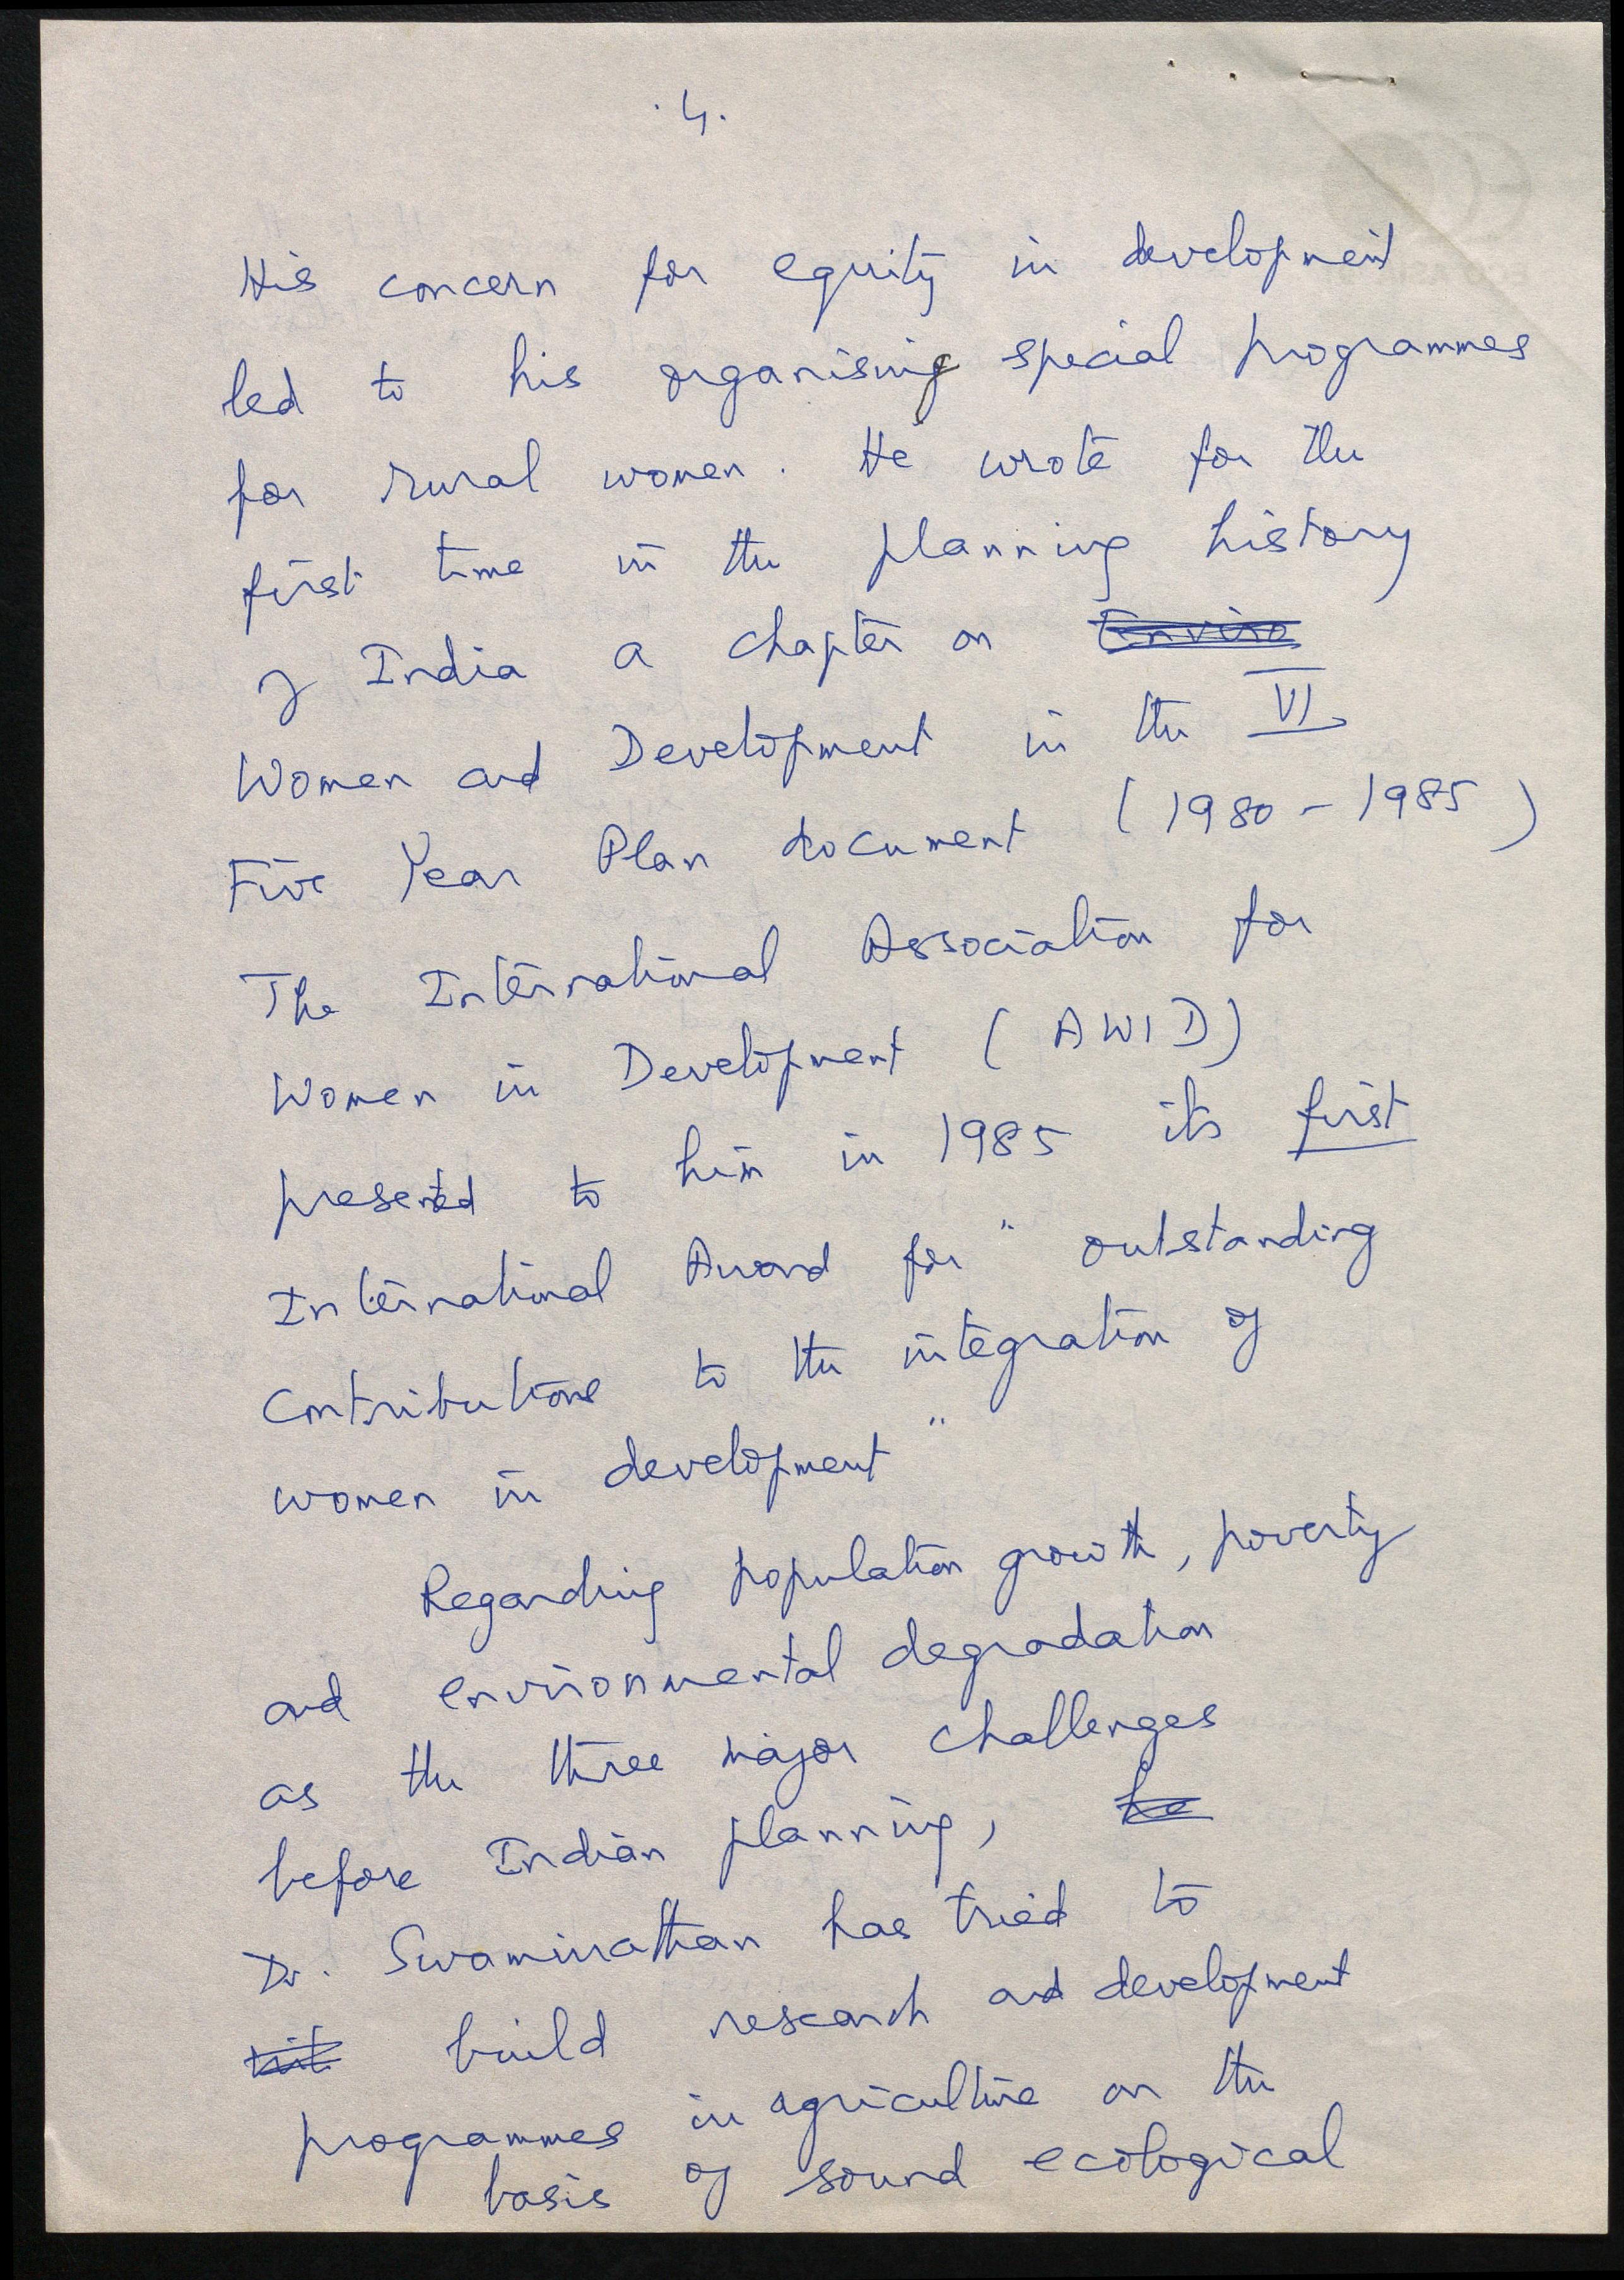 .4.
His concern for equity in development
led to his organising special programmes
for rural women. He wrote for the
first time in the planning history
of India a chapter on Enviro
Women and Development in the VI
Five Year Plan document (1980-1985)
The International Association for
Women in Development (AWID)
presented to him in 1985 its first
International Award for "outstanding
contributions to the integration of
women in development"
Regarding population growth, poverty
and environmental degradation
as the three major challenges
before Indian planning, he
Dr. Swaminathan has tried to
build research and development
programmes in agriculture on the
basis of sound ecological